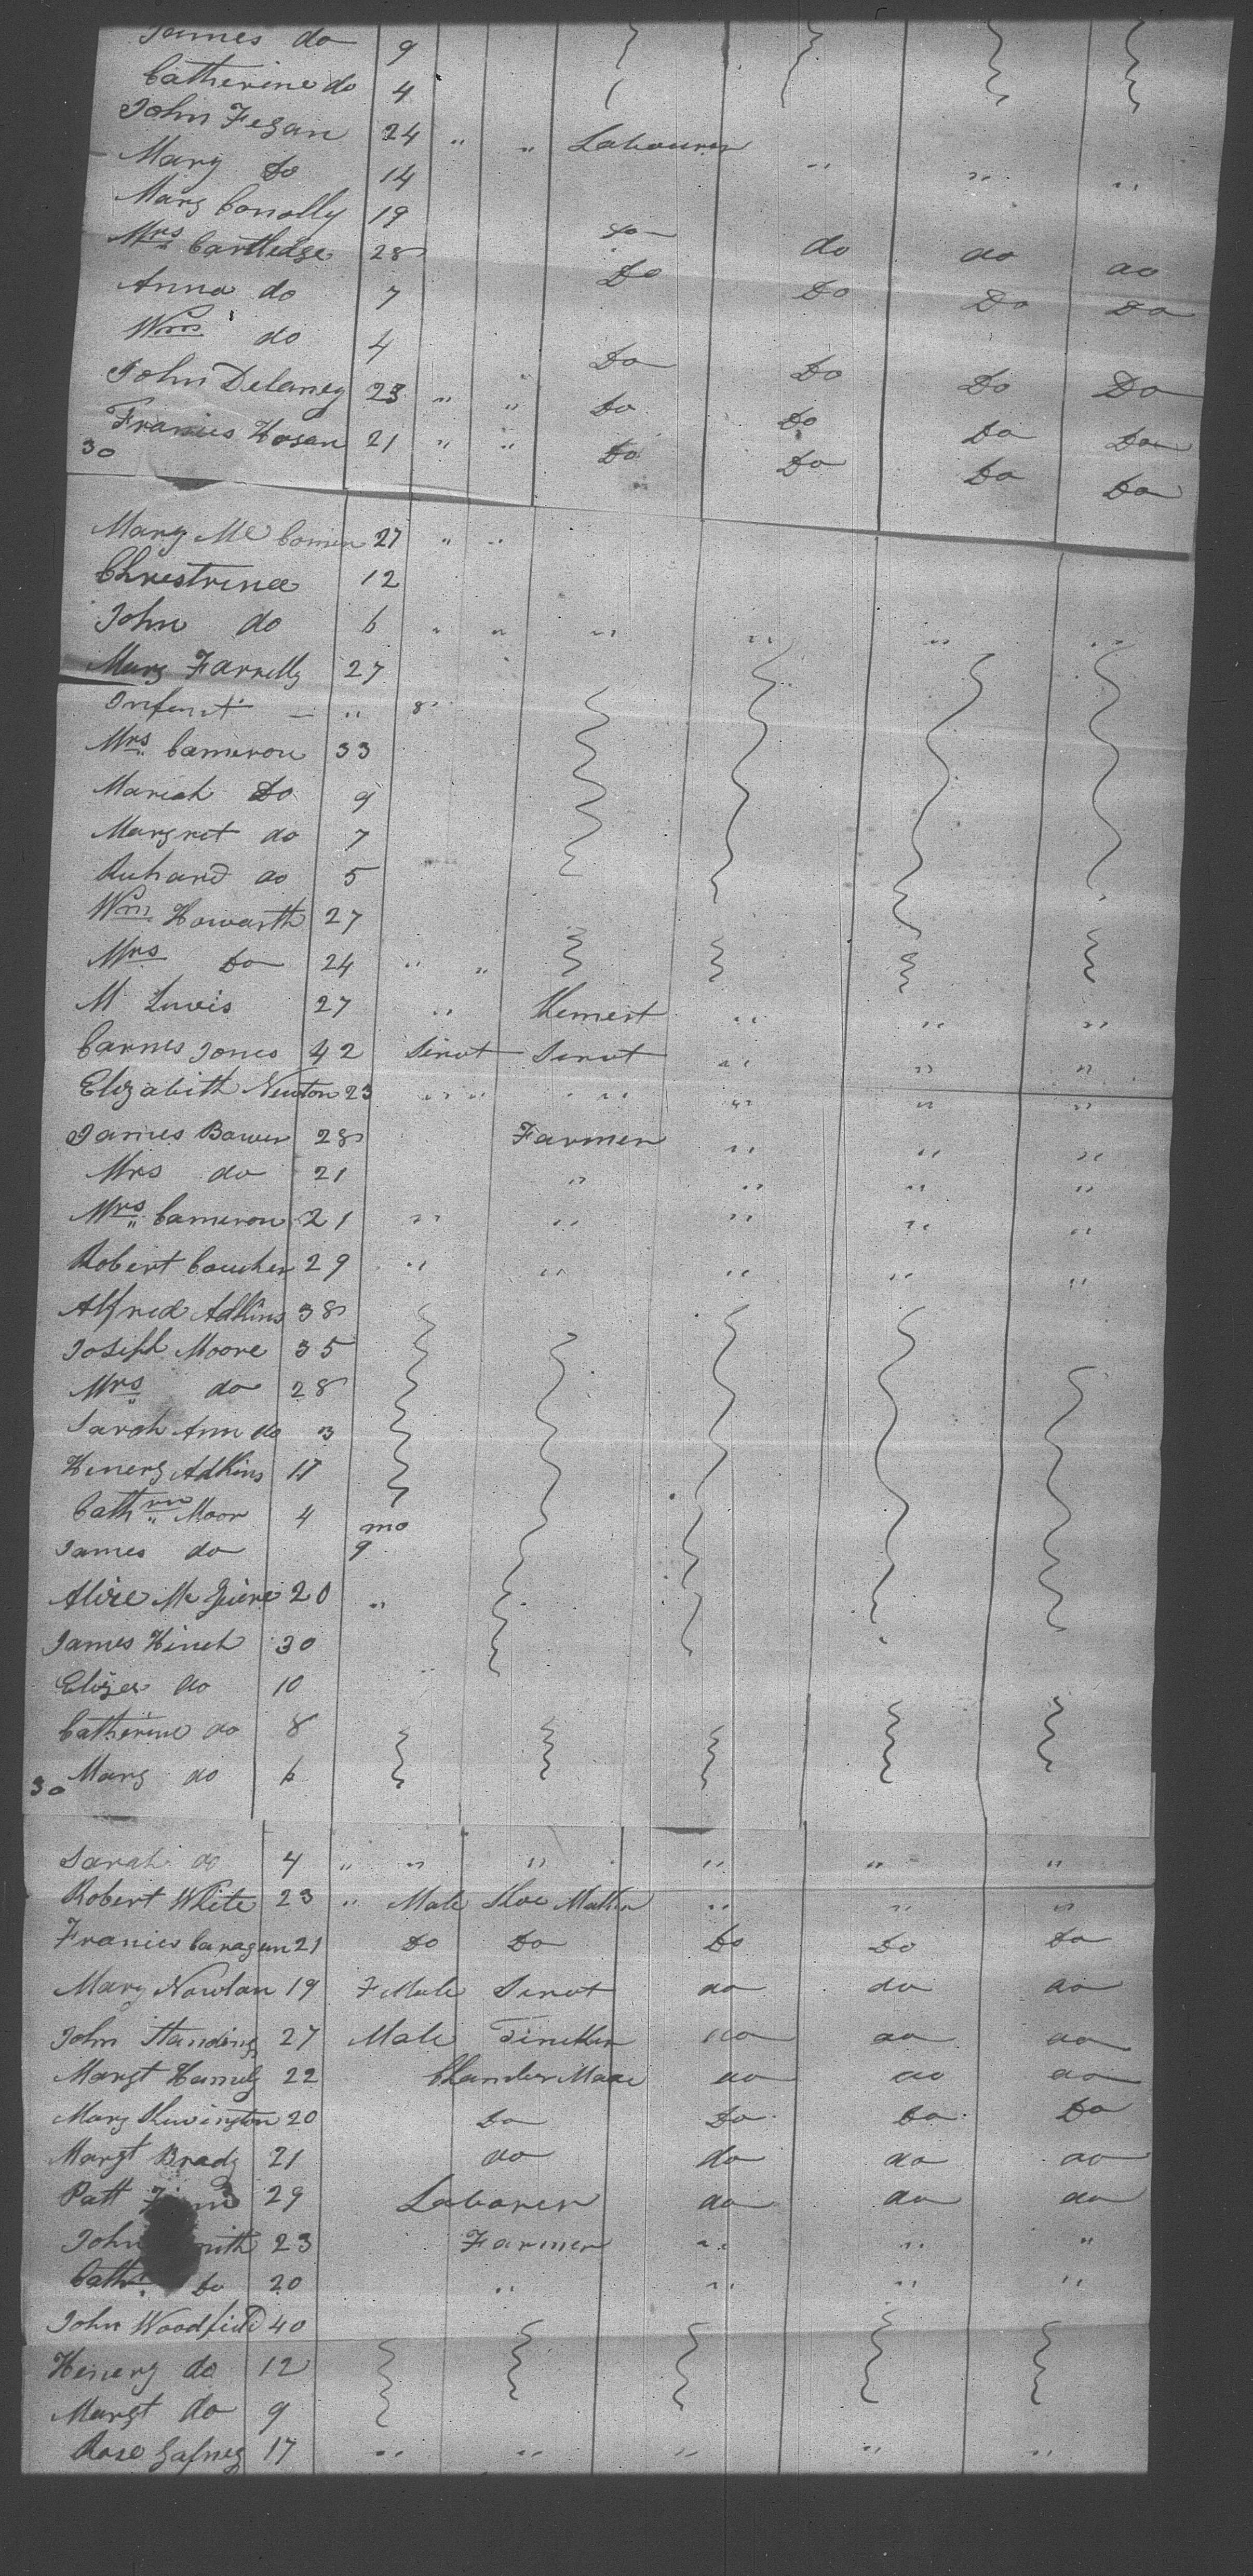 James do 9
Catherine do 4
John Fegan 24 " " Labourer " " "
Mary Do 14
Mary Conolly 19 Do do do do
Mrs Cartledge 28 Do Do Do Do
Anna do 7
Wm do 4 Do Do Do Do
John Delaney 23 " " Do Do Do Do
Francis Hogan 21 " " Do Do Do Do
30
Mary Mc 27 " "
Chrestrinee 12
John do 6 " " " " " "
Mary Farrelly 27
Infent " 8
Mrs Cameron 33
Mariah Do 9
Margret do 7
Richard do 5
Wm Howarth 27
Mrs Do 24 " "
M Lewis 27 " " " "
James Jones 42 Servt Servt " " "
Elizabith Newton 23 " " " " " "
James Bower 28 Farmer " " "
Mrs do 21 " " " "
Mrs Cameron 21 " " " " "
Robert 29 " " " " "
Alfred Adkins 38
Joseph Moore 35
Mrs do 28
Sarah Ann do 3
Henery Adkins
Cathrn Moor 4 mo
James do 9
Alice Mc Guire 20 "
James Hinch 30
Eliza do 10
Catherine do 8
Mary do 6
30
Sarah do 4 " " " " " "
Robert White 23 " Male Shoe Maker " " "
Francis 21 Do Do Do Do Do
Mary Nowlan 19 F Male Servt do do do
John Standing 27 Male do do do
Margt 22 Chamber Made do do do
Mary 20 Do Do Do Do
Margt Brady 21 do do do do
Patt 29 Laborer do do do
John 23 Farmer " " "
Cathn Do 20 " " " "
John Woodfield 40
Henery do 12
Margt do 9
Rose Gafney 17 " " " " "